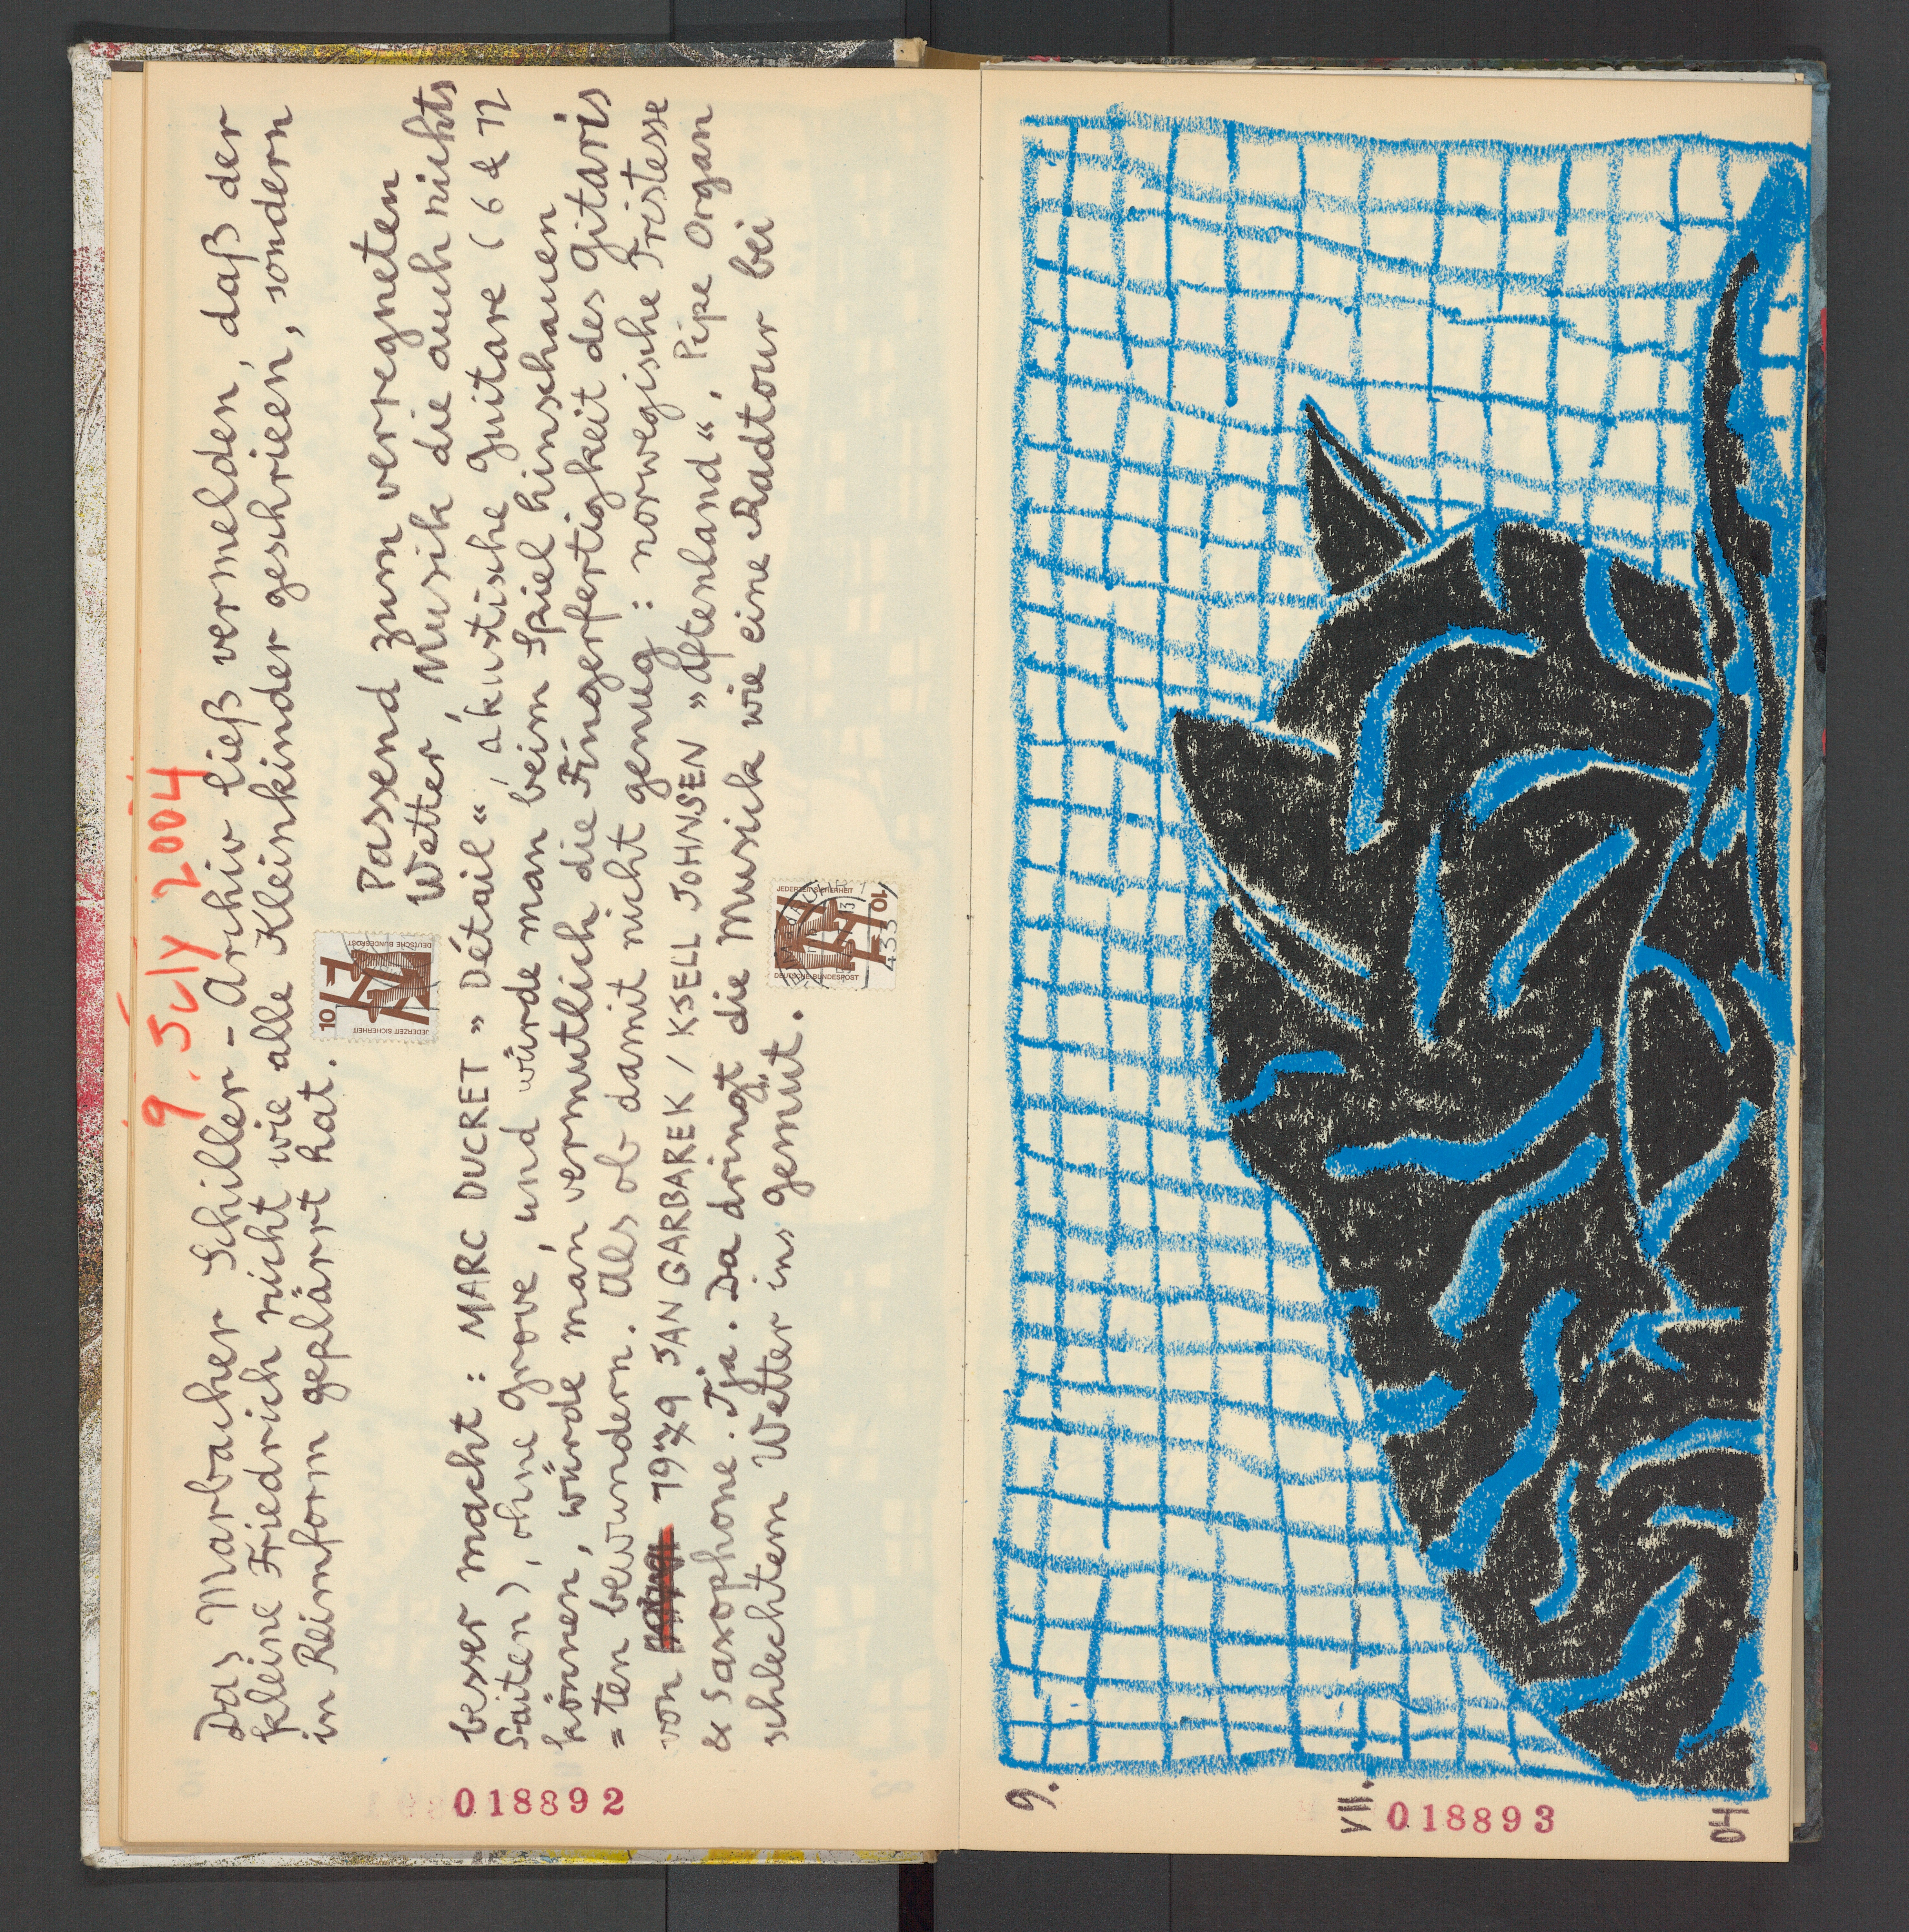 9. July 2004
Das Marbacher Schiller-Archiv ließ vermelden, daß der
kleine Friedrich nicht wie alle Kleinkinder geschrieen, sondern
in Reimform geplärrt hat.
Passend zum verregneten
Wetter, Musik die auch nichts
besser macht: MARC DUCRET »Détail«, akustische Guitare (6 & 12
Saiten), ohne Groove, und würde man beim Spiel hinschauen
können, würde man vermutlich die Fingerfertigkeit des Gitaris
=ten bewundern. Als ob damit nicht genug: norwegische Tristesse
von 1979 JAN GARBAREK / KSELL JOHNSEN »Aftenland«, Pipe Organ
& Saxophone. Tja. Da dringt die Musick wie eine Radtour bei
schlechtem Wetter ins Gemüt.
10
DEUTSCHE BUNDESPOST
JEDERZEIT SICHERHEIT
10
DEUTSCHE BUNDESPOST
JEDERZEIT SICHERHEIT
433
018892
9.
VII.
04
018893